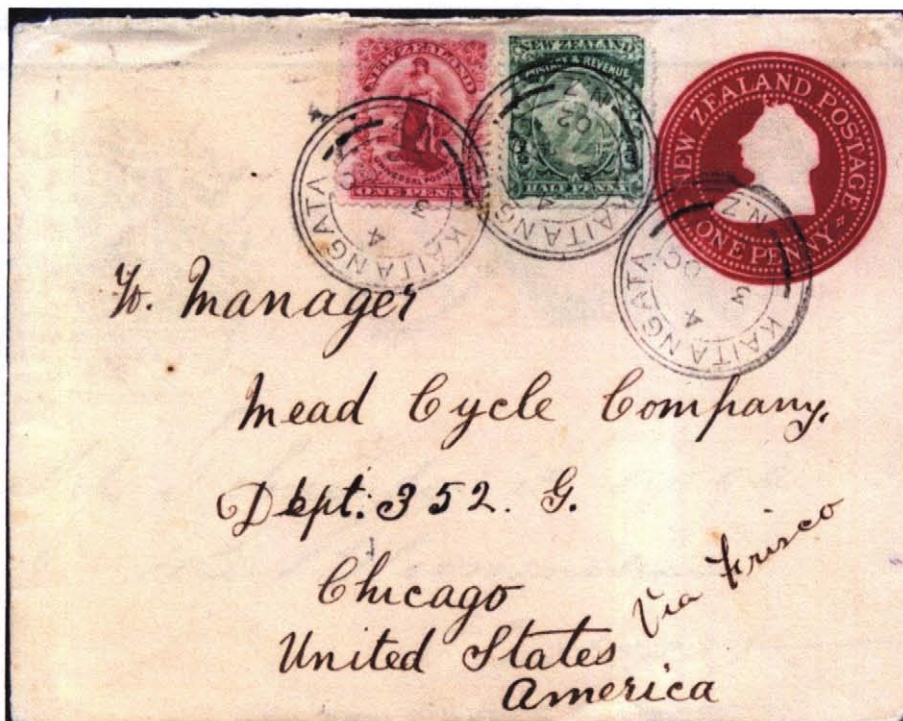 NEW ZEALAND
ONE PENNY
NEW ZEALAND
POSTAGE & REVENUE
HALF PENNY
NEW ZEALAND POSTAGE
ONE PENNY
KAITANGATA
4
3
KAITANGATA
N.Z
4
02
KAITANGATA
N.Z.
4
3
OC
To. Manager
Mead Cycle Company,
Dept. 352. G.
Chicago
Via Frisco
United States
America